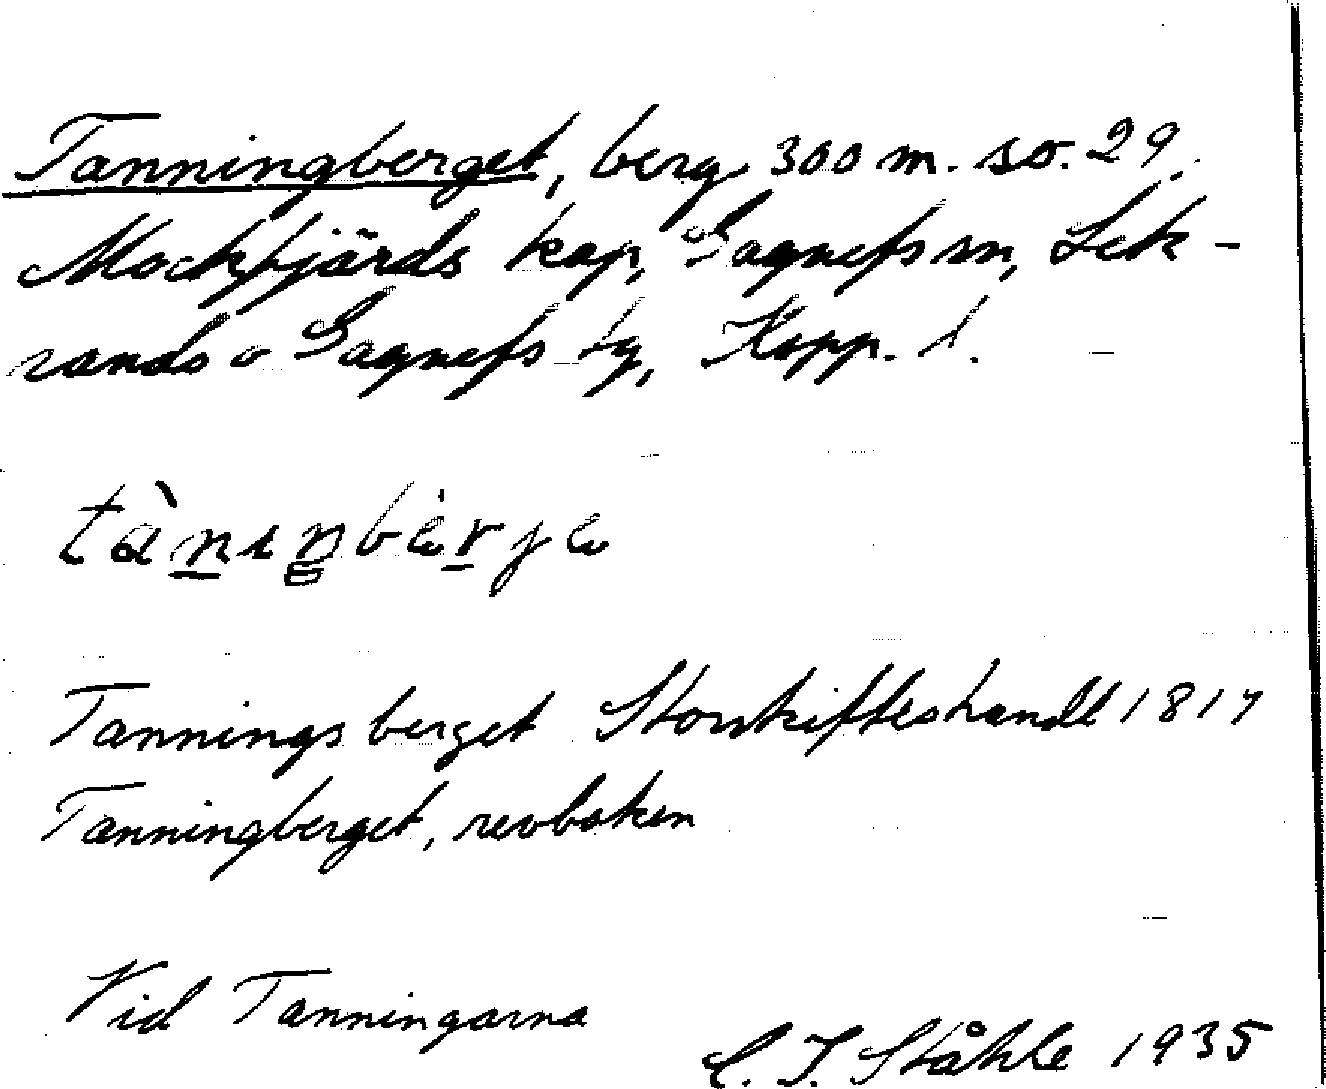 Tanningberget, berg 300 m. so. 29.
Mockfjärds kap, Gagnefs sn, Lek-
sands o Gagnefs tg, Kopp. l.
tànıŋbèrje
Tannings berget Storskifteshandl 1817
Tanningberget, revboken
Vid Tanningarna
C. I. Ståhle 1935